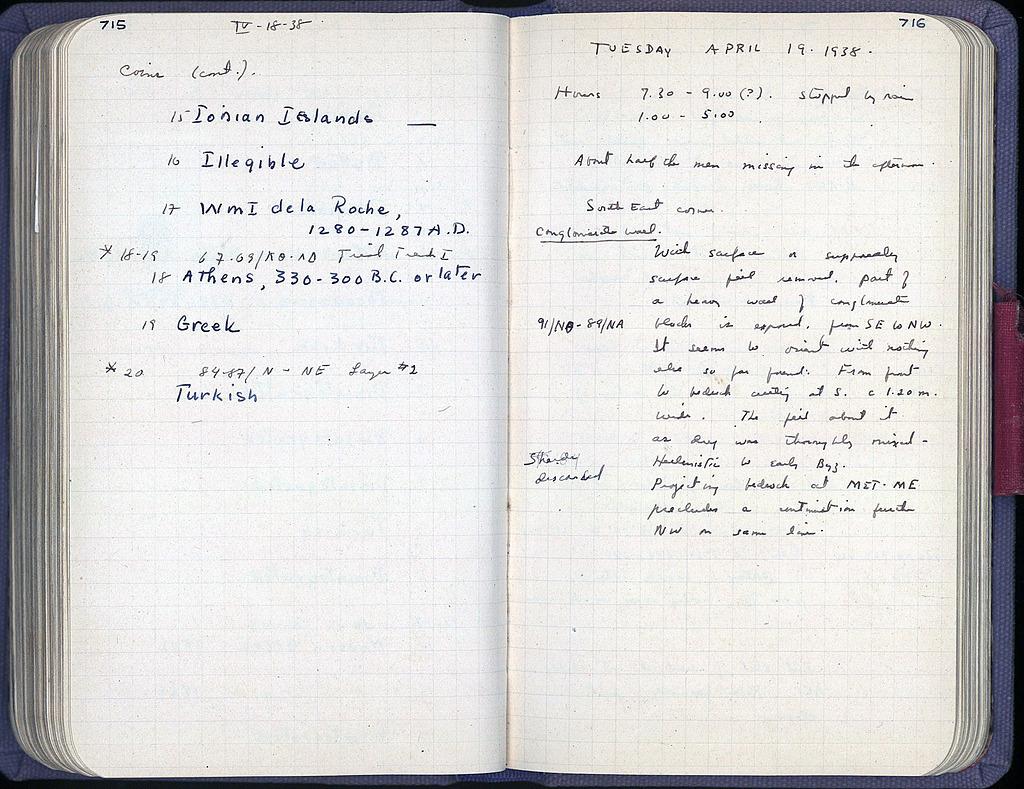 715
IV-18-38
Coins (cont.).
15 Ionian Islands —
16 Illegible
17 Wm I de la Roche,
1280-1287 A.D.
* 18-19 67-69/ Trial Trench I
18 Athens, 330-300 B.C. or later
19 Greek
* 20 84-87/N - NE Layer #2
Turkish
716
TUESDAY APRIL 19. 1938.
Hours 7.30 - 9.00 (?). stopped by rain
1.00 - 5.00.
About half the men missing in the afternoon.
South East corner.
Conglomerate wall.
With surface or supposedly
surface fill removed, part of
a heavy wall of conglomerate
91/NΘ-89/NA blocks is exposed, from SE to NW.
It seems to orient with nothing
else so far found. From front
to bedrock cutting at S. c 1.20 m.
wide. The fill about it
as dug was thoroughly mixed -
Sherds Hellenistic to early Byz.
discarded Projecting bedrock at ME
precludes a continuation further
NW on same line.